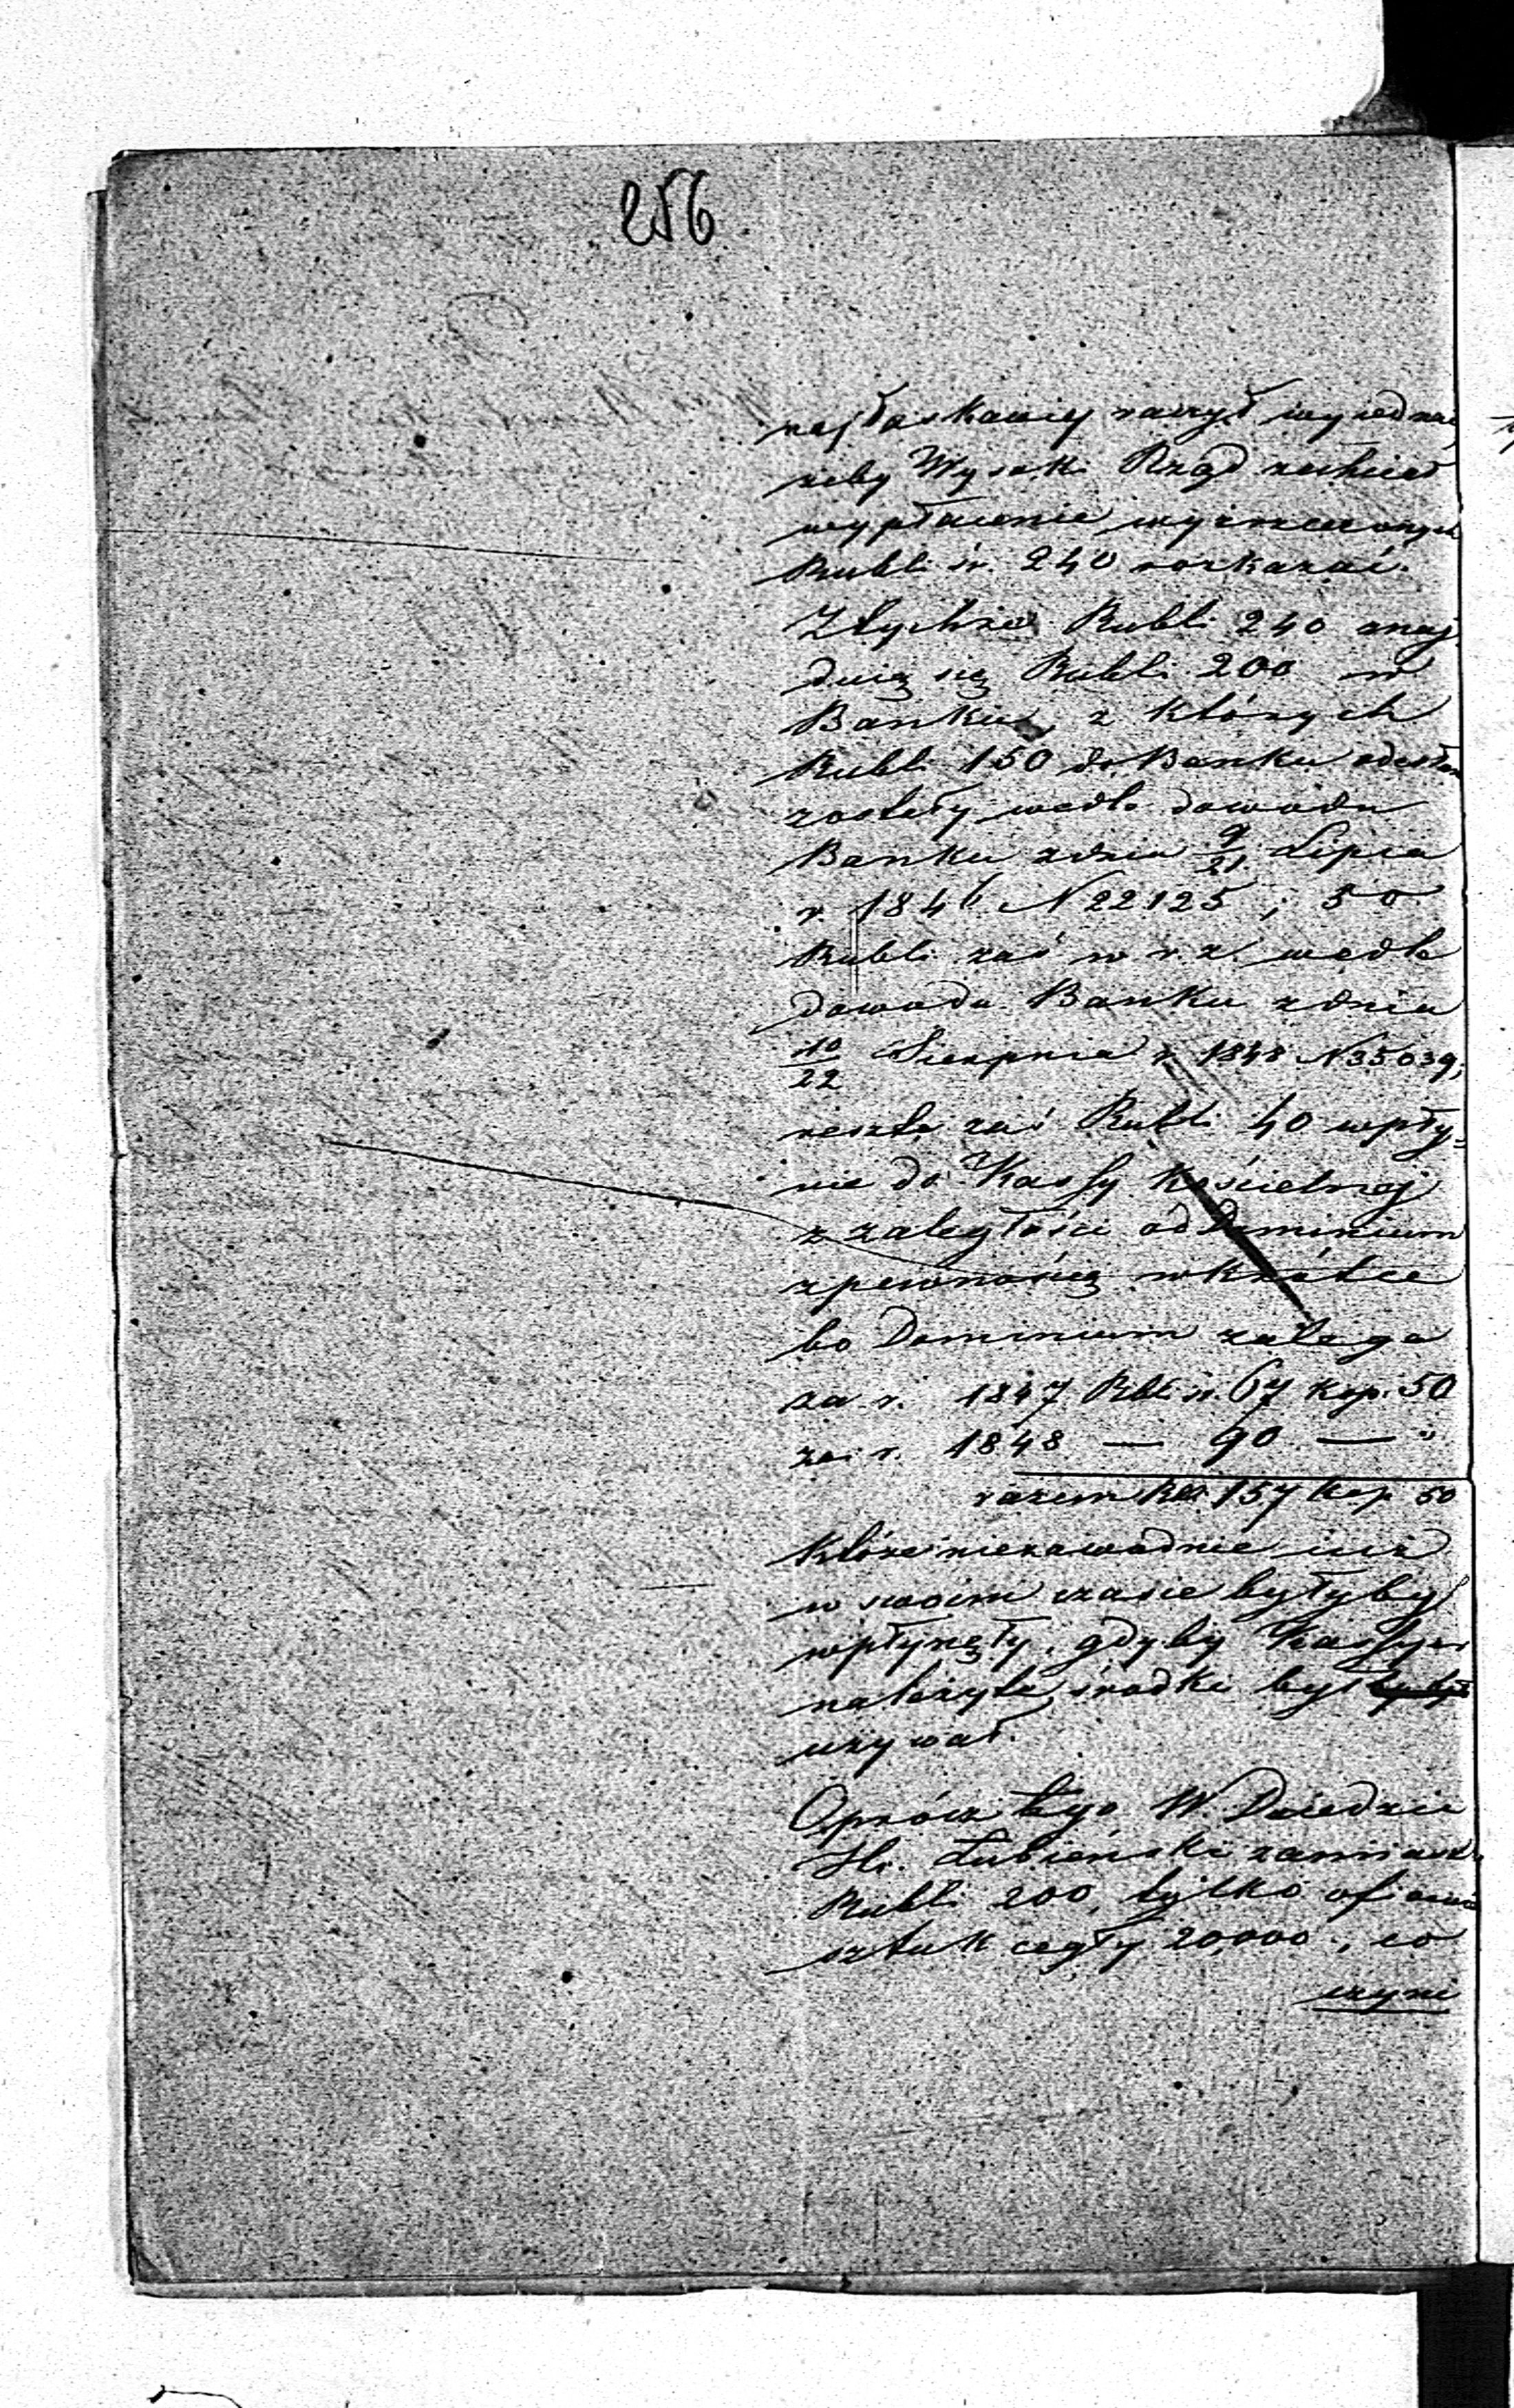 256
najłaskawiej raczył wyjednać
żeby Wysoki Rząd zechciał
wypłacenie wyrzeczonych
Rubli sr. 240 rozkazać.
Z tychże Rubli 240 znaj
duią się Rubli 200 w
Banku, z których
Rubli 150 do Banku odesłan
zostały wedle dowodu
Banku z dnia 9/21 Lipca
r. 1846 N 22125; 50
Rubli zaś w r. z. wedle
dowodu Banku z dnia
10/22 Sierpnia r. 1848 N 35039;
reszta zaś Rubli 40 wpły=
nie do Kassy Kościelnej
z zaległości od Dominium
z pewnością wkrótce
bo Dominium zalega
za r. 1847 Rbl sr. 67 kop. 50
za r. 1848 — 90 — "
razem Rbl 157 kop 50
które niezawodnie iuż
w swoim czasie byłyby
wpłynęły, gdyby Kassyer
należyte środki był
używał.
Oprócz tego W. Dziedzic
Hr. Łubieński zamiast
Rubli 200, tylko ofiaruie
sztuk cegły 20,000, co
czyni